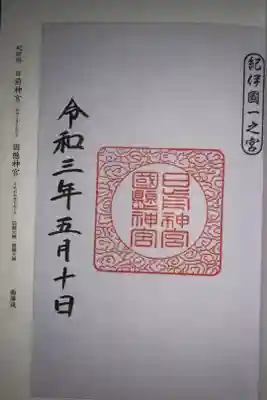 紀伊國一之宮
日前神宮
國懸神宮
令和三年五月十日
日前神宮
國懸神宮